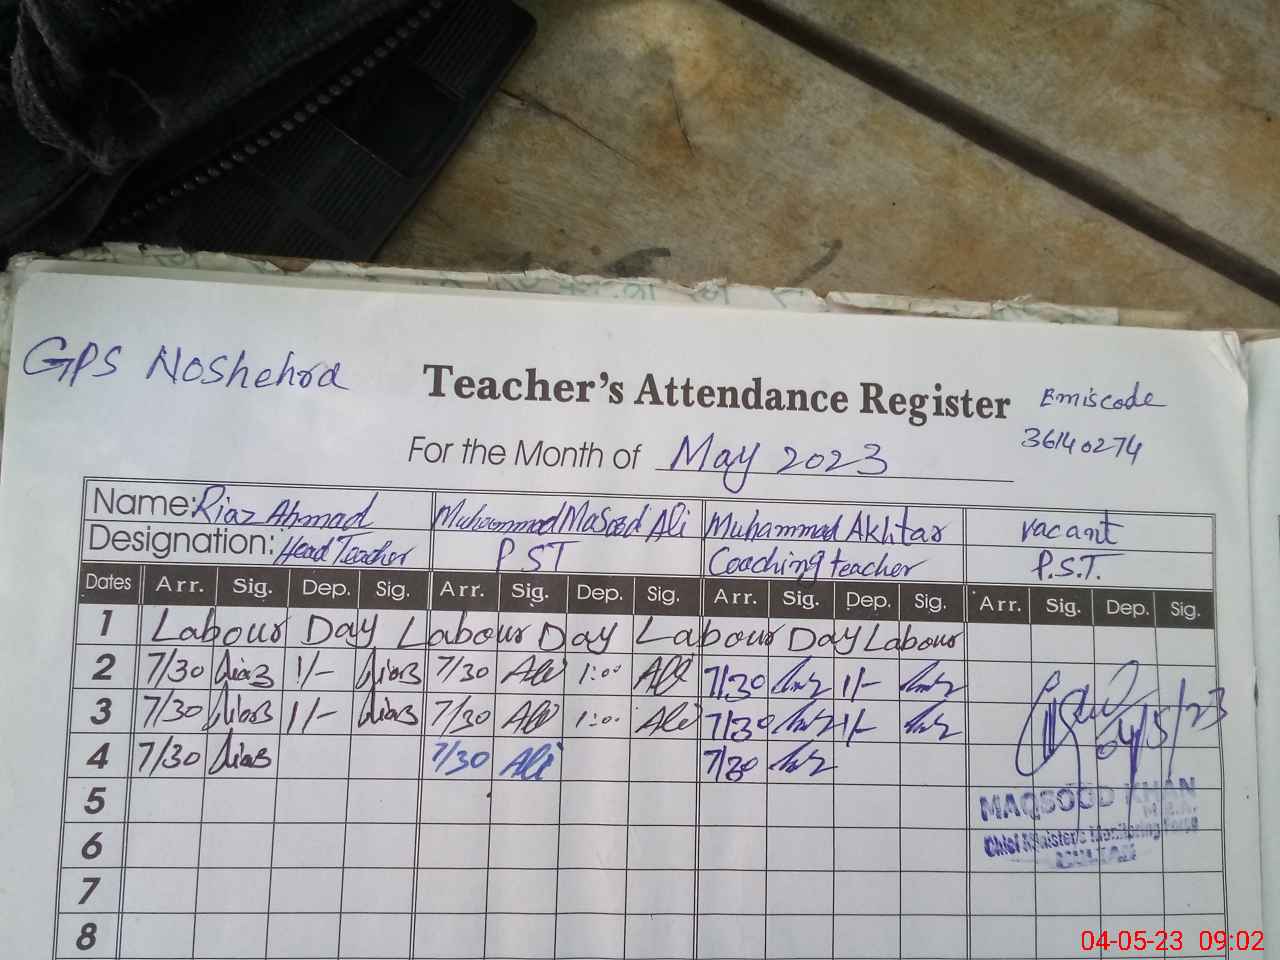 GPS Noshehra
Teacher's Attendance Register
Emiscode
36140274
For the Month of May 2023
Name: Riaz Ahmad Muhammad Masood Ali Muhammad Akhtar vacant
Designation: Head Teacher PST Coaching teacher P.S.T.
Dates Arr. Sig. Dep. Sig. Arr. Sig. Dep. Sig. Arr. Sig. Dep. Sig. Arr. Sig. Dep. Sig.
1 Labour Day Labour Day Labour Day Labour
2 7/30 1/- 7/30 Ali 1:00 Ali 7/30 1/-
3 7/30 1/- 7/30 Ali 1:00 Ali 7/30 1/-
4 7/30 7/30 Ali 7/30
04/5/23
5
MAQSOOD KHAN
M.E.A.
6
Chief Minister's Monitoring Force
MULTAN
7
8
04-05-23 09:02